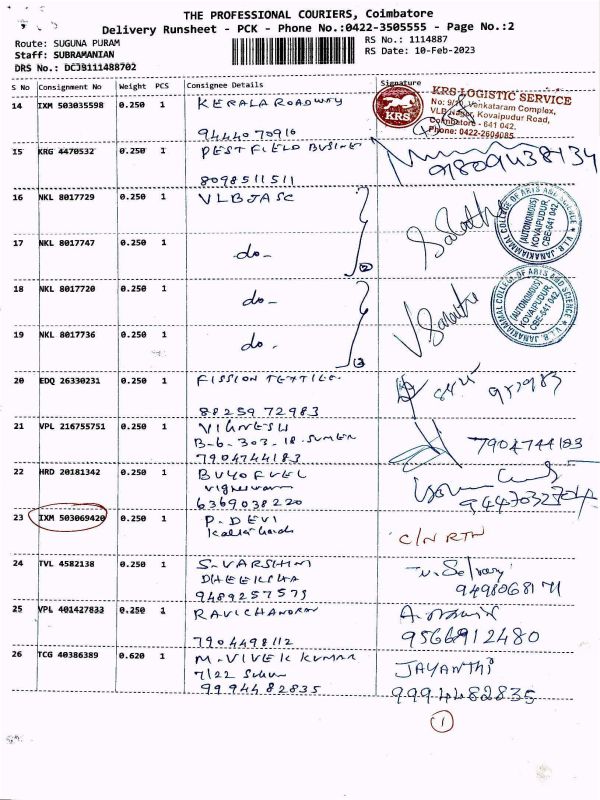 THE PROFESSIONAL COURIERS, Coimbatore
Delivery Runsheet - PCK - Phone No.:0422-3505555 - Page No.:2
Route: SUGUNA PURAM
RS No.: 1114887
Staff: SUBRAMANIAN
RS Date: 10-Feb-2023
DRS No.: DCJB111488702
S No Consignment No Weight PCS Consignee Details Signature
14 IXM 503035598 0.250 1 KERALA ROADWAY
9444070916
KRS
KRS LOGISTIC SERVICE
No: 9/10, Venkataram Complex,
VLB Nagar, Kovaipudur Road,
Coimbatore - 641 042.
Phone: 0422-2604085
15 KRG 4470532 0.250 1 PEST FIELD BUSINE
8098511511
91809438134
16 NKL 8017729 0.250 1 VLBJASC
17 NKL 8017747 0.250 1 do-
2
V.L.B. JANAKIAMMAL COLLEGE OF ARTS AND SCIENCE
(AUTONOMOUS)
KOVAIPUDUR,
CBE-641 042
18 NKL 8017720 0.250 1 do-
19 NKL 8017736 0.250 1 do.
V.L.B. JANAKIAMMAL COLLEGE OF ARTS AND SCIENCE
(AUTONOMOUS)
KOVAIPUDUR,
CBE-641 042
20 EDQ 26330231 0.250 1 FISSION TEXTILE.
8825972983
21 VPL 216755751 0.250 1 VIGNESH
B-6-303-18-SUMER
7904744183
7904744183
22 HRD 20181342 0.250 1 BUYOFUEL
vigneswaran
6369038220
9447032704
23 IXM 503069420 0.250 1 P. DEVI
C/N RTN
24 TVL 4582138 0.250 1 S. VARSHINI
DHEEKSHA
9489257573
9498068171
25 VPL 401427833 0.250 1 RAVICHANDRAN
7904498112
9566912480
26 TCG 40386389 0.620 1 M. VIVEK KUMAR
7/22
9994482835
JAYANTHI
9994482835
1